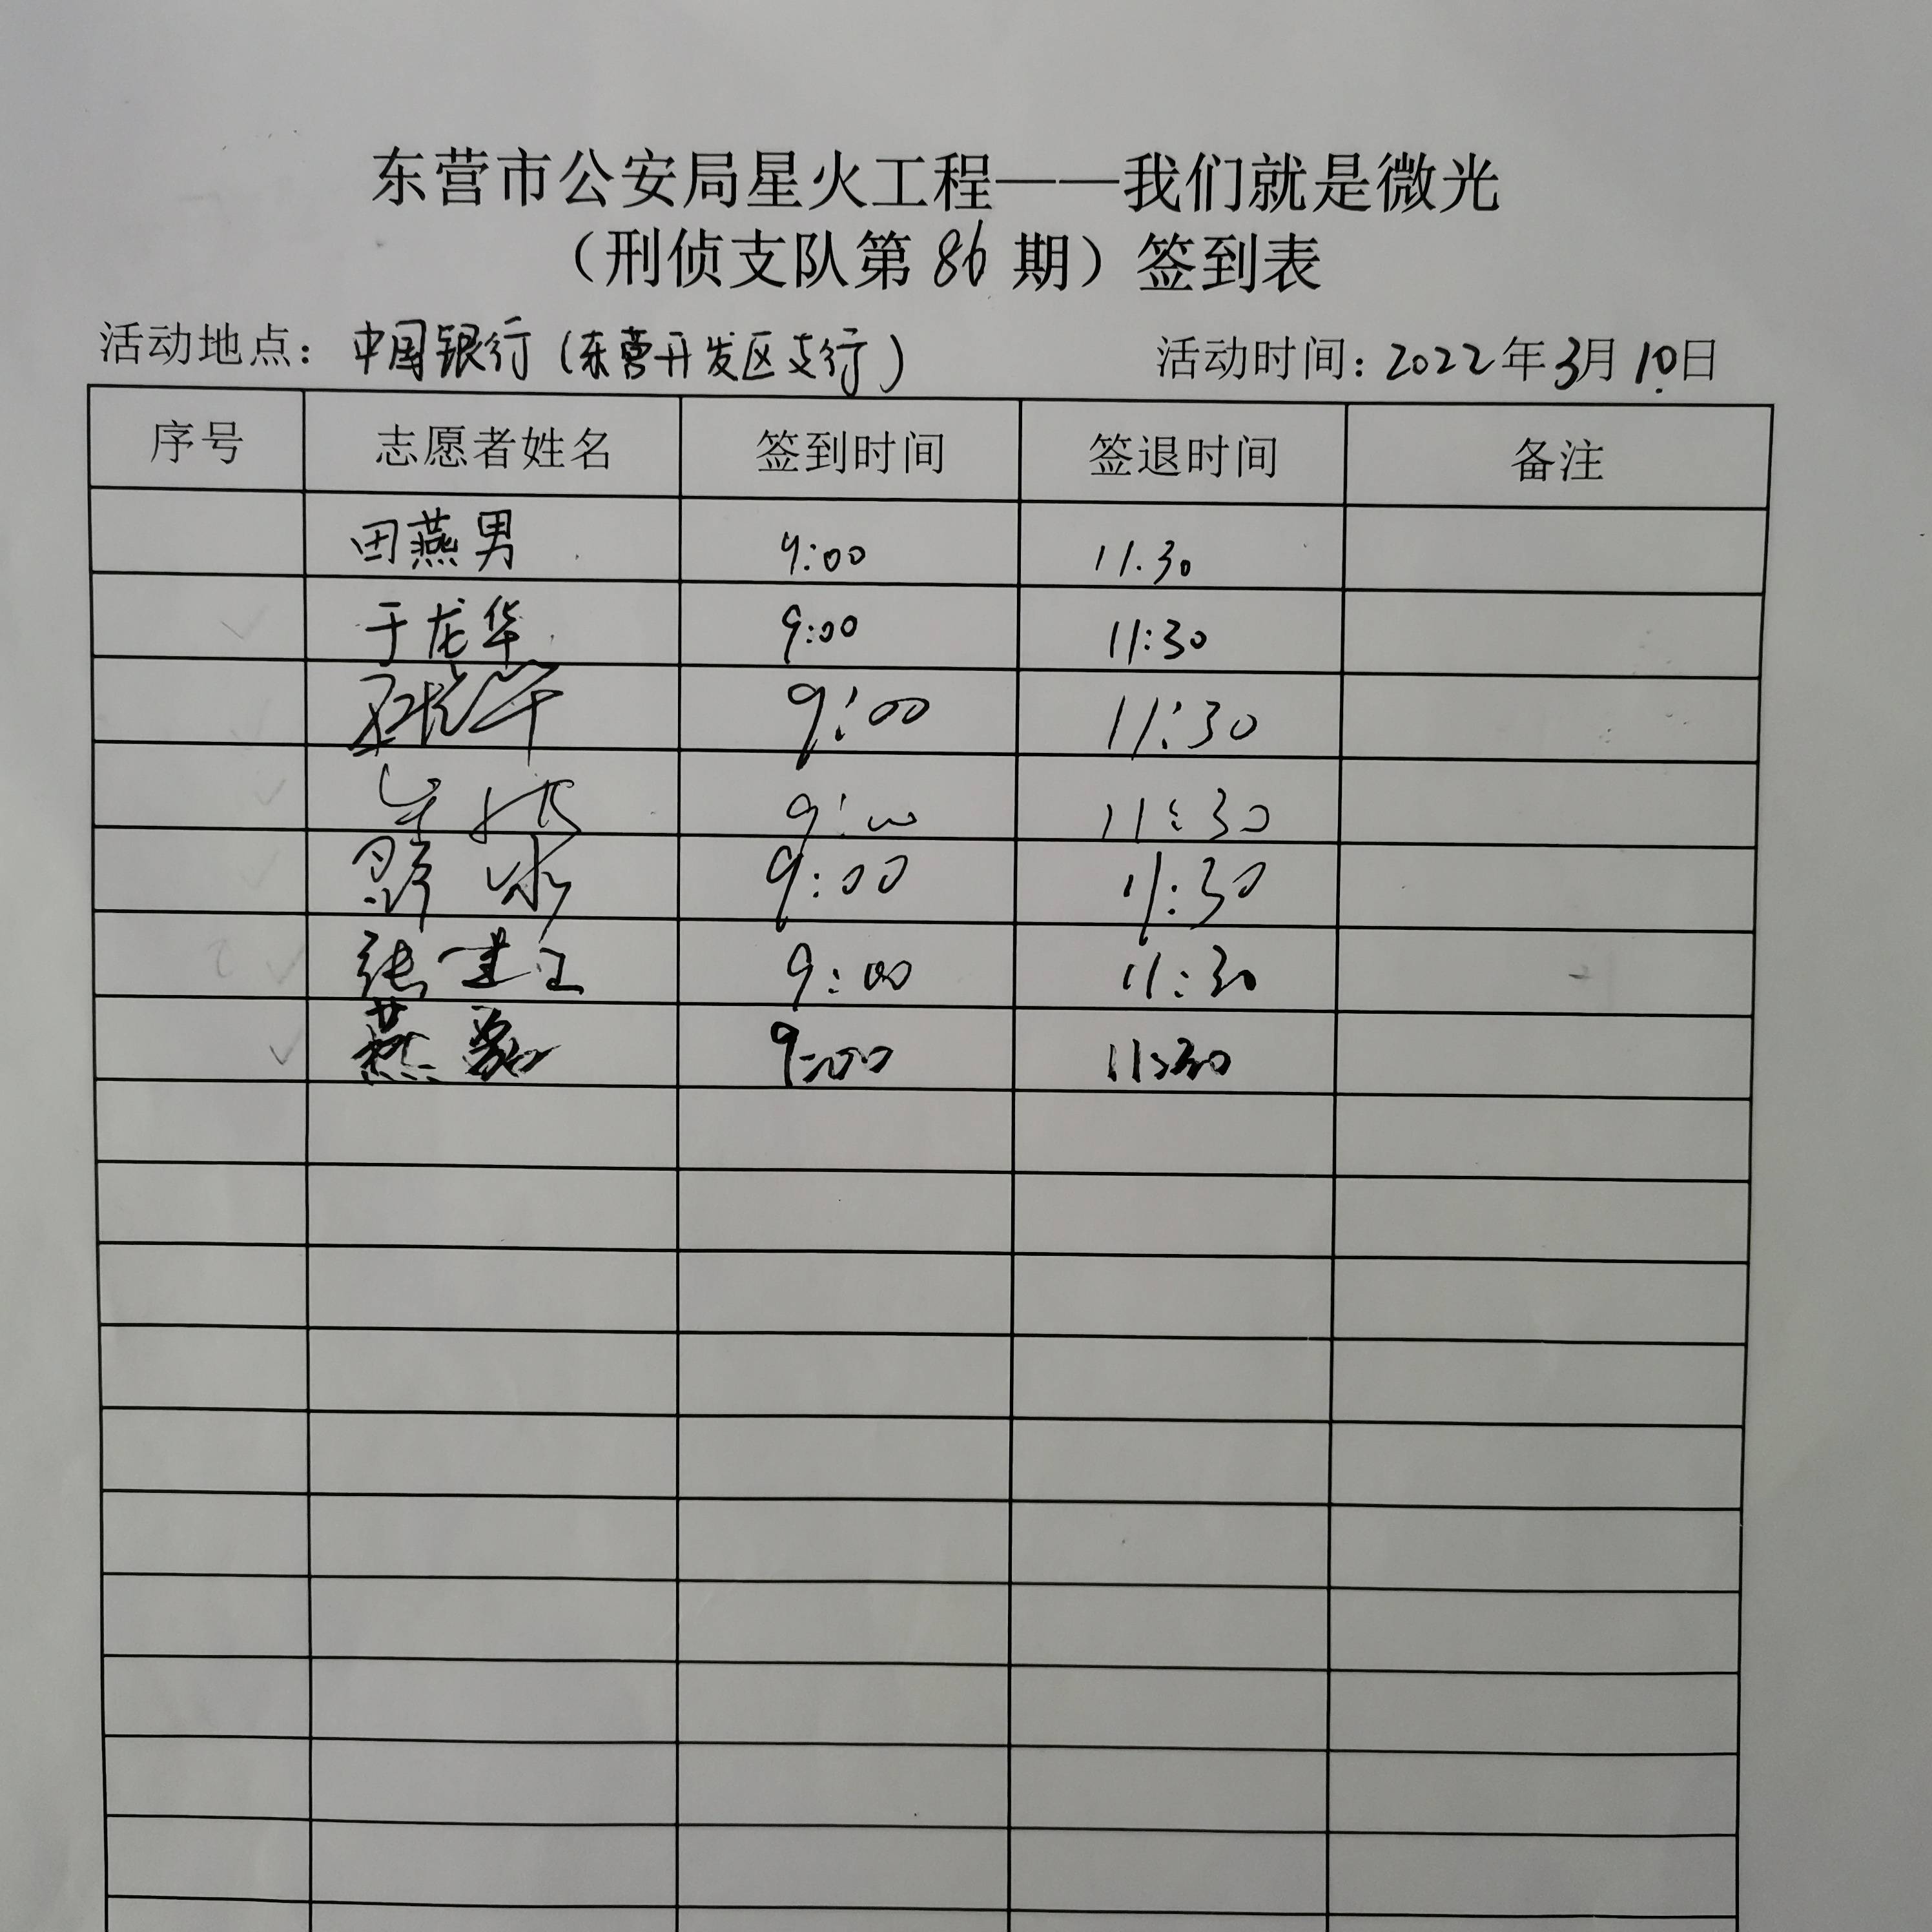 东营市公安局星火工程——我们就是微光
（刑侦支队第86期）签到表
活动地点：中国银行（东营开发区支行） 活动时间：2022年3月10日
序号 志愿者姓名 签到时间 签退时间 备注
田燕男 9:00 11.30
于龙华 9:00 11:30
9:00 11:30
9:00 11:30
9:00 11:30
张建卫 9:00 11:30
燕 9:00 11:30